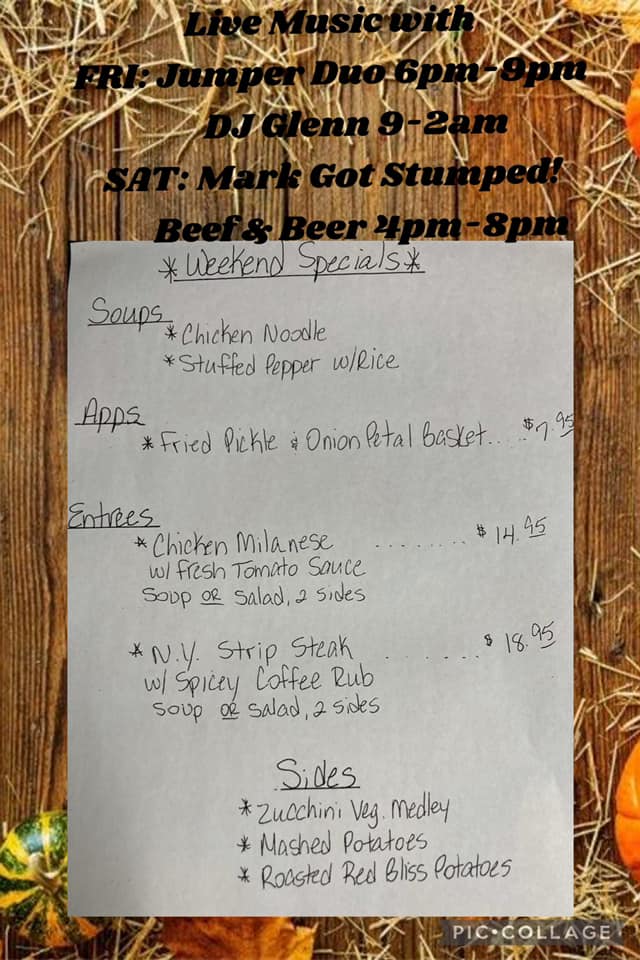 Live Music with
FRI: Jumper Duo 6pm-9pm
DJ Glenn 9-2am
SAT: Mark Got Stumped!
Beef & Beer 4pm-8pm
* Weekend Specials *
Soups
* Chicken Noodle
* Stuffed Pepper w/Rice
Apps
* Fried Pickle & Onion Petal Basket..... $7.95
Entrees
* Chicken Milanese ........ $14.95
w/ Fresh Tomato Sauce
Soup OR Salad, 2 Sides
* N.Y. Strip Steak ....... $18.95
w/ Spicey Coffee Rub
Soup OR Salad, 2 Sides
Sides
* Zucchini Veg. Medley
* Mashed Potatoes
* Roasted Red Bliss Potatoes
PIC•COLLAGE